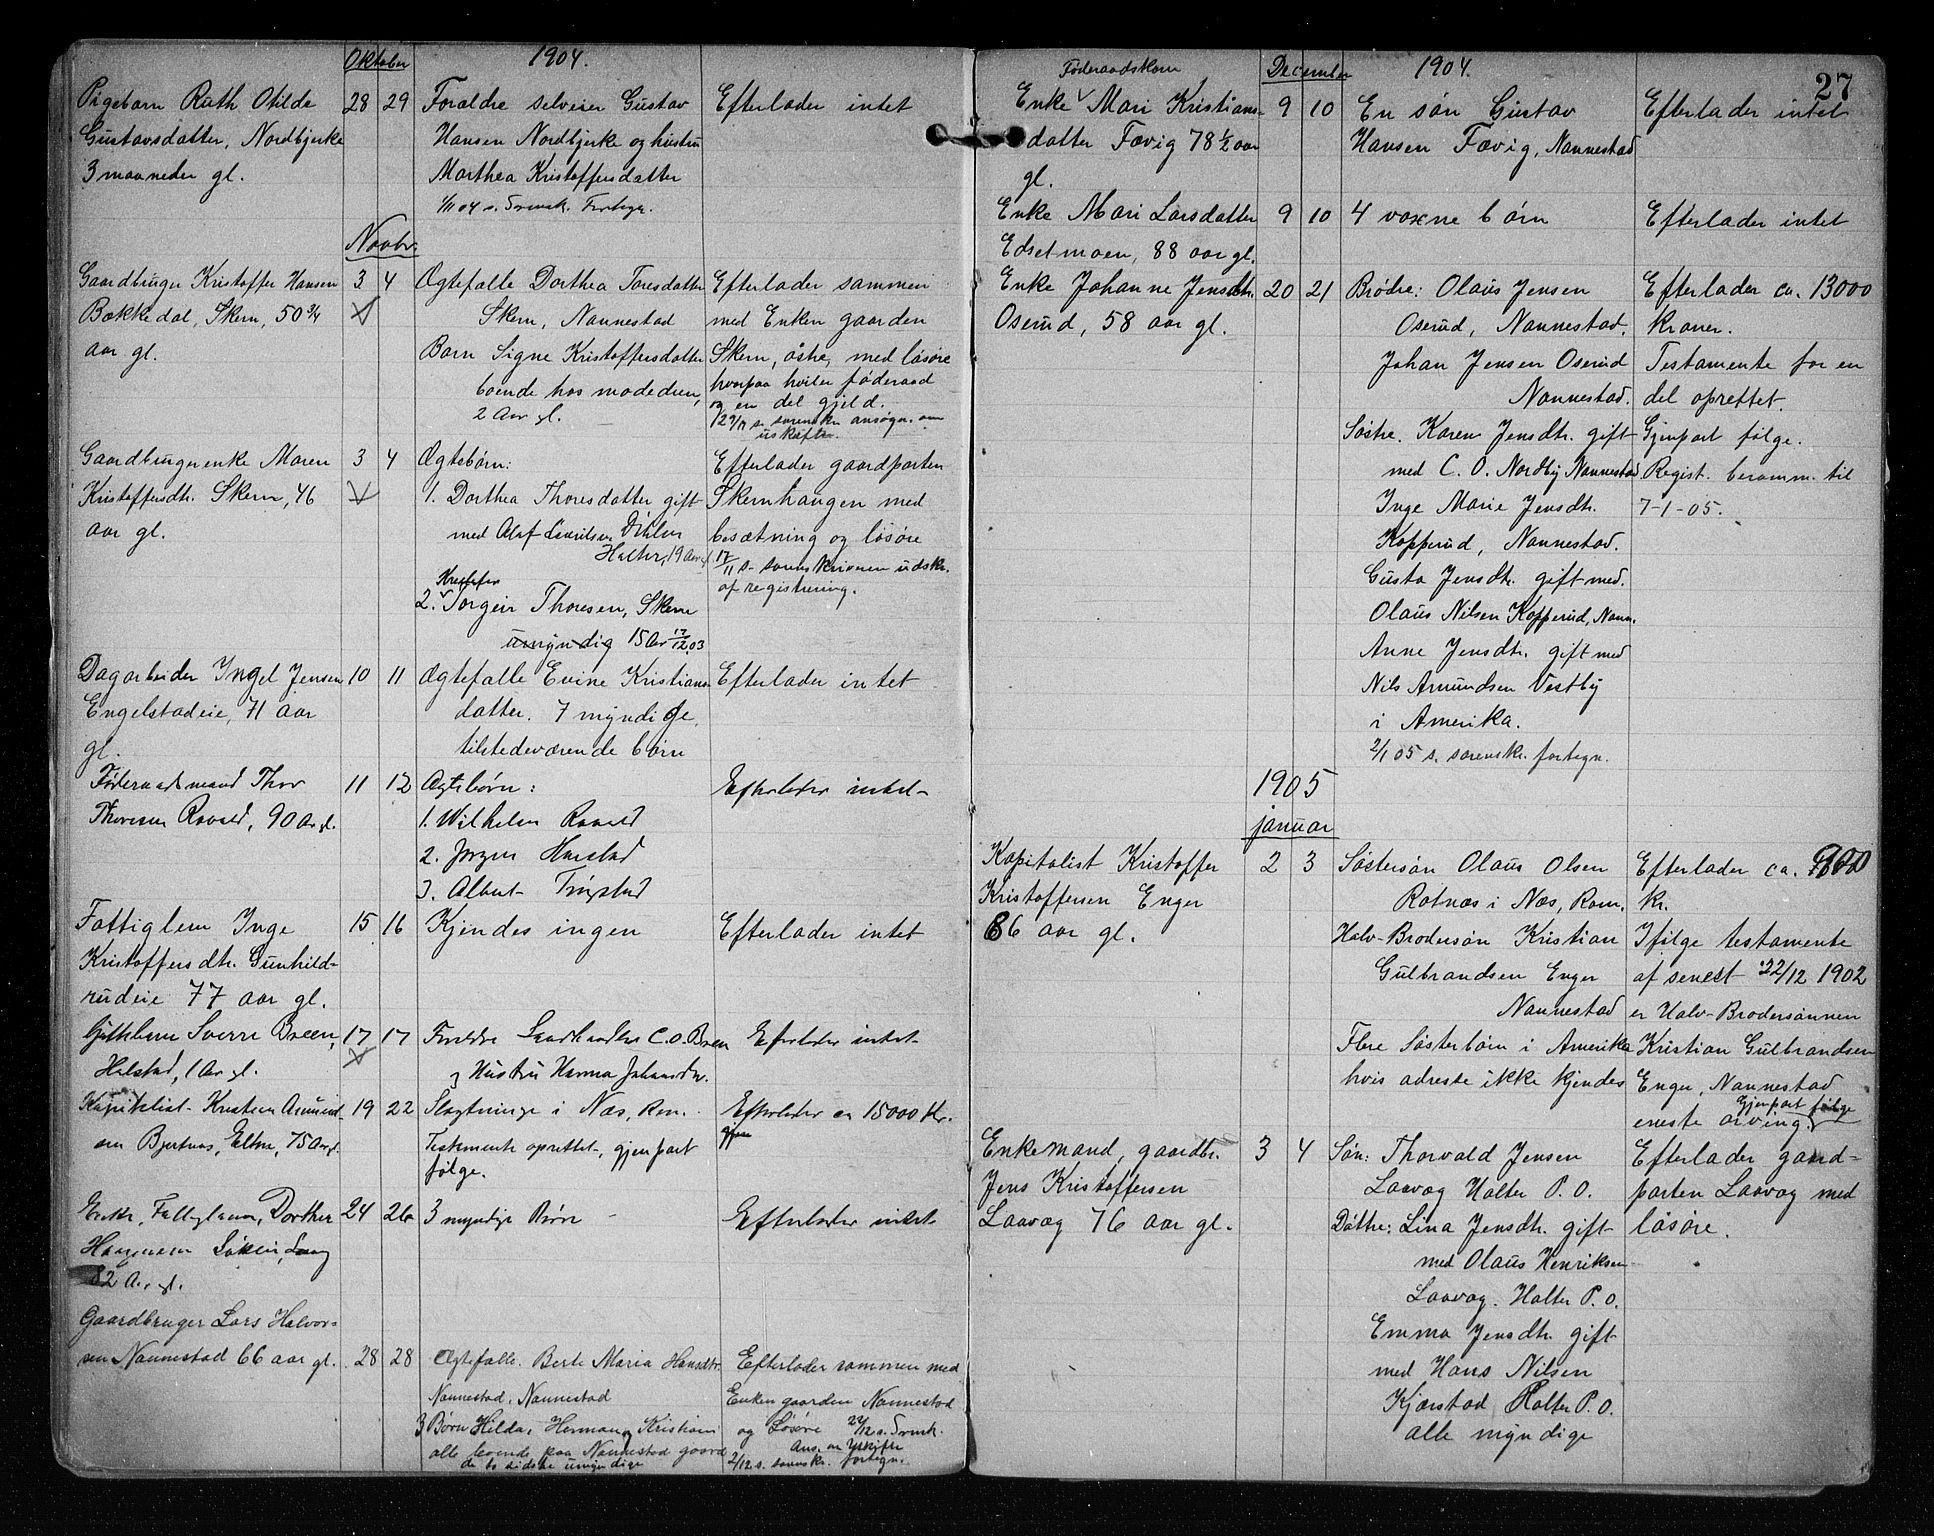 Oktober 1904.
Pigebarn Ruth Otilde 28 29 Forældre selveier Gustav Efterlader intet
Gustavsdatter, Nordbjerke Hansen Nordbjerke og hustru
3 maaneder gl. Marthea Kristoffersdatter
1/11 04 s. Sorensk. Fortegn.
Novbr.
Gaardbruger Kristoffer Hansen 3 4 Ægtefælle Dorthea Toresdatter Efterlader sammen
Bækkedal, Skern, 50 3/4 Skern, Nannestad med Enken gaarden
aar gl. Barn Signe Kristoffersdatter Skern, østre, med løsøre
boende hos moderen, hvorpaa hviler føderaad
2 Aar gl. og en del gjeld.
s. sorenskr. ansøgn. om
uskifte.
Gaardbrugerenke Maren 3 4 Ægtebørn: Efterlader gaardparten
Kristoffersdtr. Skern, 46 1. Dorthea Thoresdatter gift Skernhaugen med
aar gl. med Olaf Lauritsen besætning og løsøre
Halter, 19 Aar gl. 17/11 s. sorenskriveren udskr.
Kristofer af registrering.
2. Torgeir Thoresen, Skern
umyndig 15 Aar 17/12.03
Dagarbeider Ingel Jensen 10 11 Ægtefælle Evine Kristians Efterlader intet
Engelstadeie, 71 aar datter. 7 myndige,
gl. tilstedeværende børn
Føderaadsmand Thor 11 12 Ægtebørn: Efterlader intet
Thoresen Raavold, 90 Aar gl. 1. Wilhelm Raavold
2. Jørgen Harstad
3. Albert Tingstad
Fattiglem Inge 15 16 Kjendes ingen Efterlader intet
Kristoffersdtr. Gunhild-
rudeie 77 aar gl.
Sverre Breen, 17 17 Forældre Landhandler C. O. Breen Efterlader intet
Holstad, 1 Aar gl. og Hustru Herma Johansdtr.
Kapitalist Kristian Amund 19 22 Slægtninge i Næs, Rom. Efterlader ca 15000 Kr.
sen Bjertnæs, Eltun, 75 Aar gl. Testamente oprettet, gjenpart gjen
følge.
Enke, Fattiglem, Dorthea 24 26 3 myndige Børn Efterlader intet
Haagensen
82 Aar gl.
Gaardbruger Lars Halvor-
sen Nannestad 66 aar gl. 28 28 Ægtefælle. Berte Maria Hansdtr. Efterlader sammen med
Nannestad, Nannestad Enken gaarden Nannestad
3 Børn Hilda, Herman og Kristian og Løsøre s. Sorensk.
alle boende paa Nannestad gaard Ans. om Uskifte
de to sidste umyndige 2/12 s. sorenskr. fortegn.
27
Føderaadskone December 1904.
Enke Mari Kristians- 9 10 En søn Gustav Efterlader intet
datter Fævig 78 1/2 aar Hansen Fævig, Nannestad
gl.
Enke Mari Larsdatter 9 10 4 voxne børn Efterlader intet
Edsetmoen, 88 aar gl.
Enke Johanne Jensdtr. 20 21 Brødre: Olaus Jensen Efterlader ca. 13000
Oserud, 58 aar gl. Oserud, Nannestad. kroner.
Johan Jensen Oserud Testamente for en
Nannestad. del oprettet.
Søstre. Karen Jensdtr. gift Gjenpart følge.
med C. O. Nordby Nannestad Regist. beramm. til
Inge Marie Jensdtr. 7-1-05.
Kopperud, Nannestad.
Gusta Jensdtr. gift med.
Olaus Nilsen Kopperud, Nann.
Anne Jensdtr. gift med
Nils Amundsen Vestby
i Amerika.
2/1 05 s. sorenskr. fortegn.
1905
januar
Kapitalist Kristoffer 2 3 Søstersøn Olaus Olsen Efterlader ca.
Kristoffersen Enger Rotnæs i Næs, Rom. kr.
86 aar gl. Halv-Brodersøn Kristian Ifølge testamente
Gulbrandsen Enger af senest 22/12 1902
Nannestad er Halv-Brodersønnen
Flere Søsterbørn i Amerika Kristian Gulbrandsen
hvis adreste ikke kjendes Enger, Nannestad
eneste arving. Gjenpart følge
Enkemand, gaardbr. 3 4 Søn: Thorvald Jensen Efterlader gaard-
Jens Kristoffersen Laavæg Holter P. O. parten Laavæg med
Laavæg 76 aar gl. Døttre: Lina Jensdtr. gift løsøre.
med Olaus Henriksen
Laavæg. Holter P. O.
Emma Jensdtr. gift
med Hans Nilsen
Kjærstad Holter P. O.
alle myndige